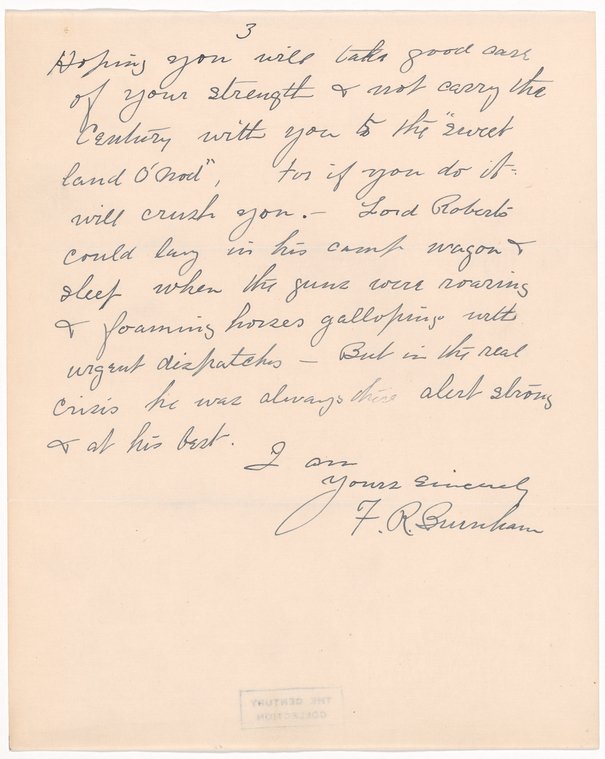 3
Hoping you will take good care
of your strength & not carry the
Century with you to the "sweet
land O'Nod", For if you do it
will crush you. — Lord Roberts
could lay in his camp wagon &
sleep when the guns were roaring
& foaming horses galloping with
urgent dispatches — But in the real
crisis he was always there alert strong
& at his best.
I am
Yours Sincerely
F. R. Burnham
THE CENTURY
COLLECTION